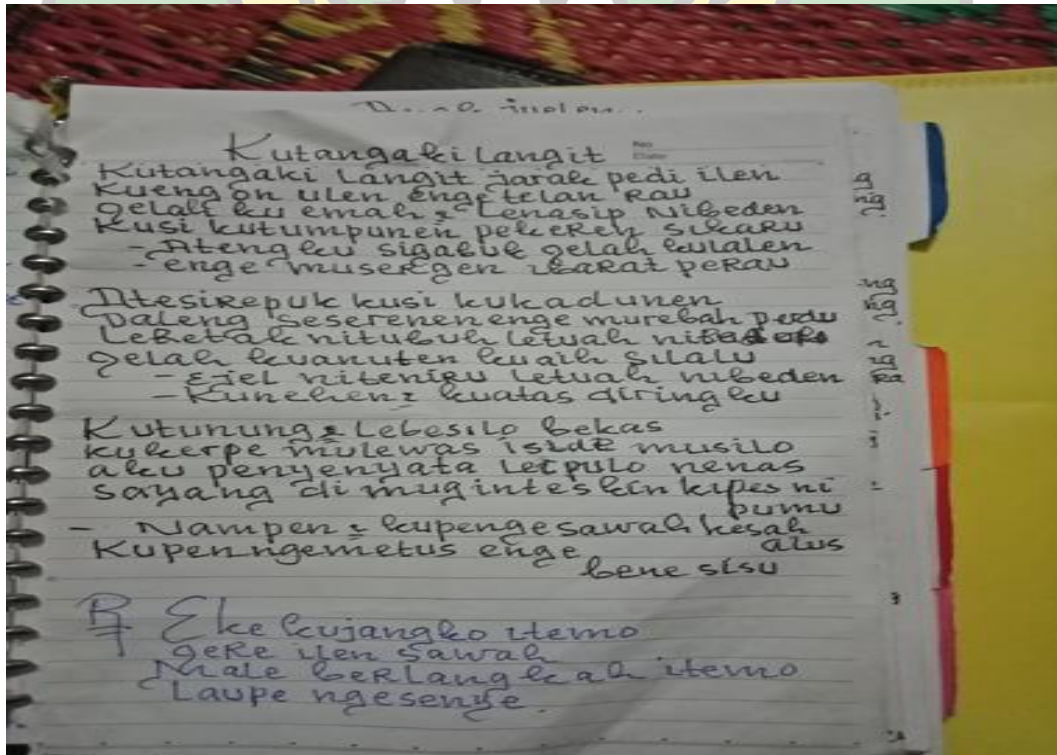 Kutangaki Langit
Kutangaki Langit jarak pedi ilen
Kuengon ulen enge telan Rau
gelah ku emah = Lenasip Nibeden
Kusi kutumpunen pekeren sikaru
- Atengku sigabuk gelah kulalen
- enge musergen ibarat perau
Atesirepuk kusi kukadunen
Daleng seserenen enge murebah perdu
Lebetak nitubuh letuah
gelah kuanuten kuaih silalu
- Ejel niteniru letuah nibeden
- Kunehen = kuatas diringku
Kutunung = Lebesilo bekas
kukerpe mulewas iside musilo
aku penyenyata Lepulo nenas
sayang di muginteskin kipes ni
bumu
- Nampen = kupenge sawah kesah
alus
Kupenngemetus enge
bene sisu
R Eke kujangko itemo
gere ilen sawah
Male berlangkah itemo
Laupe ngesenye.